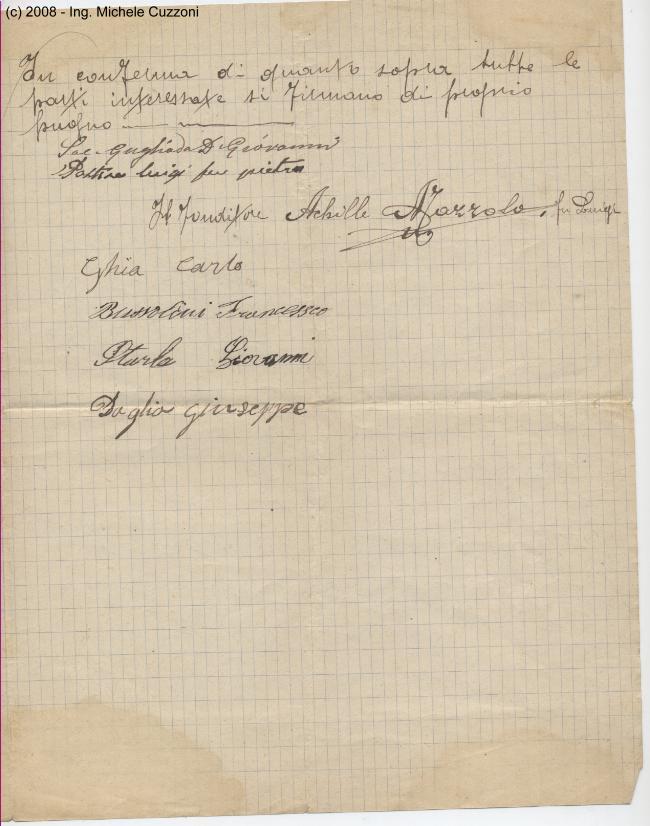 (c) 2008 - Ing. Michele Cuzzoni
In conferma di quanto sopra tutte le
parti interessate si firmano di proprio
pugno
Sac. Gugliada D. Giovanni
luigi fu pietro
Il Fonditore Achille Mazzola, fu Luigi
Ghia Carlo
Bussolini Francessco
Starla Giovanni
Doglio Giuseppe